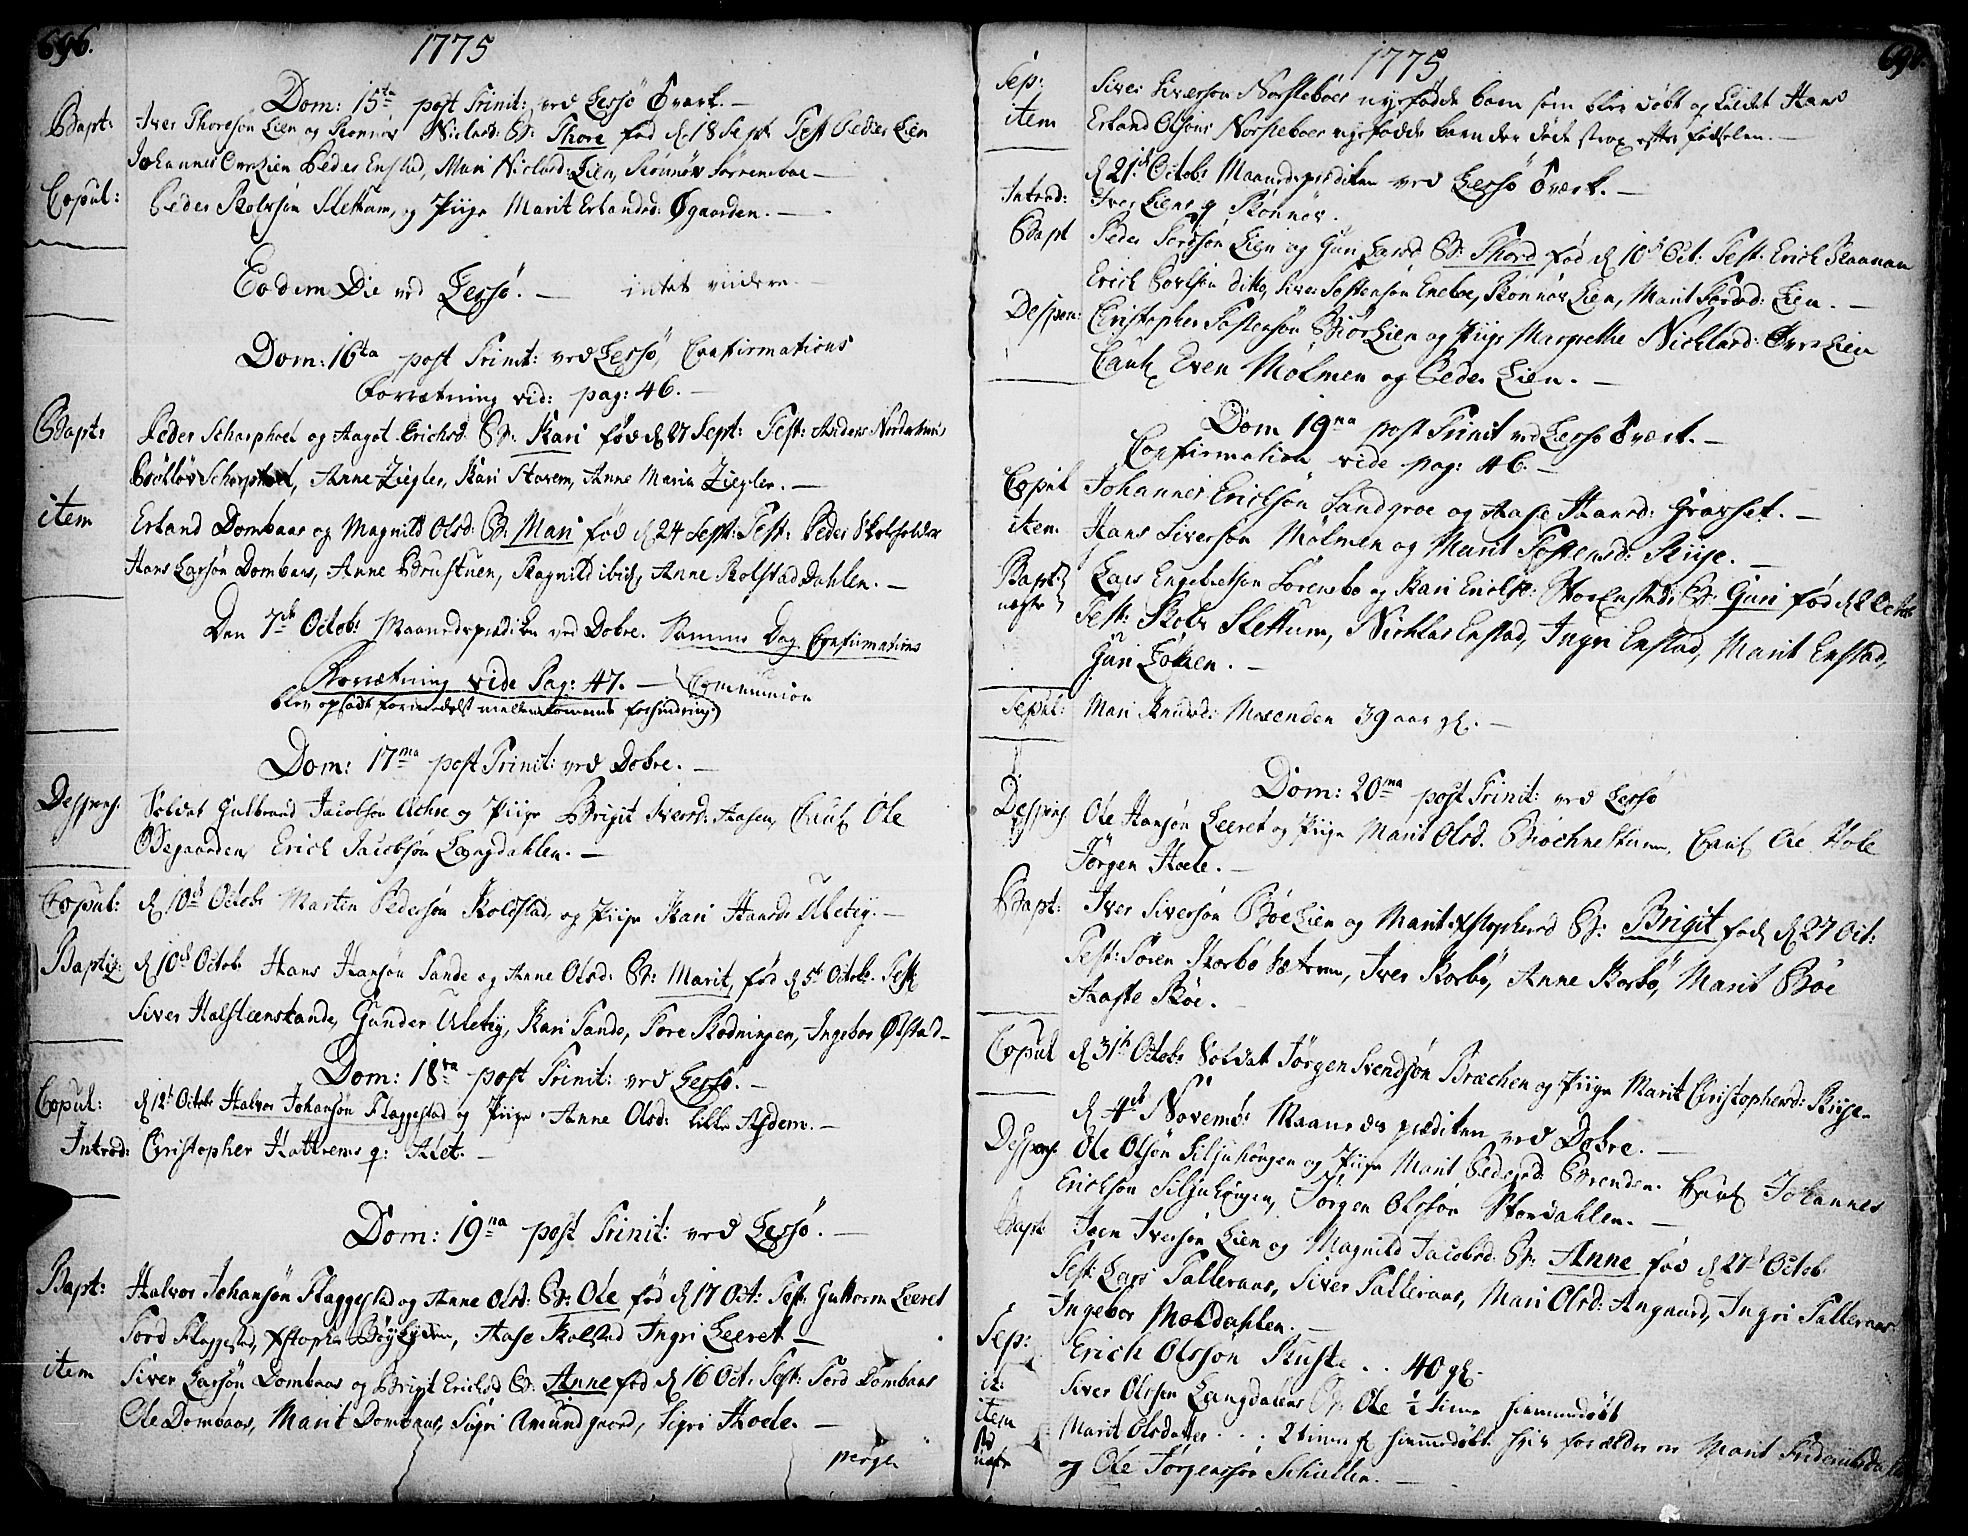 696.
1775
Dom: 15ta post Trinit: ved Lessø Værk.
Bapt: Iver Thoresøn Lien og Rønnov Niclasd: B: Thore fød d 18 Sept Test Peder Lien
Johannes Øvrelien Peder Enstad, Mari Niclasd: Lien, Rønnov Sørrenboe
Copul: Peder Rolvsøn Slettum, og Piige Marit Erlandsd: Øgaarden.
Eodem Die ved Lessø. intet videre
Dom: 16ta post Trinit: ved Lessø, Confirmations
Forrætning vid: pag: 46.
Bapt: Peder Scharphoel og Aagot Erichsd. B: Kari fød d 27 Sept: Test: Anders
Scharphoel, Anne Ziegler, Kari Stavem, Anne Maria Ziegler.
item Erland Dombaas og Magnild Olsd: B: Mari fød d 24 Sept: Test: Peder Skoleholder
Hans Larsøn Dombaas, Anne Brustuen, Ragnild ibid, Anne Rolstad Dahlen.
Den 7de Octobr Maanedsprædiken ved Dobre. Samme Dag Confirmations
Forrætning vide Pag: 47. Communion
blev opsadt formedelst mellemkommende forhindring
Dom: 17ma post Trinit: ved Dobre.
Despons. Soldat Gulbrand Jacobsøn og Piige Brigit Siversd: Aasen, Caut Ole
Øegaarden Erich Jacobsøn Langdahlen.
Copul: d 10de Octobr Marten Pedersøn Rolstad og Piige Kari Hansd: Uletig.
Baptiz: d 10de Octobr Hans Hansøn Sande og Anne Olsd: B: Marit, fød d 5t Octobr. Test
Siver Halsteenstande, Gunder Uletig, Kari Sande, Tore Rodningen, Ingebor Ølstad
Dom: 18va post Trinit: ved Lessø.
Copul: d 12t Octobr Halvor Johansøn Flaggestad og Piige Anne Olsd: Lille
Introd: Christopher Hattrems q: Alet.
Dom: 19na post Trinit: ved Lessø.
Bapt: Halvor Johansøn Flaggestad og Anne Olsd: B: Ole fød d 17 Oct: Test: Guttorm Leeret
Tord Flaggestad, Xstopher, Aase Rolstad Ingri Leeret
item Siver Larsøn Dombaas og Brigit Erichsd B: Anne fød d 16 Oct. Test: Tord Dombaas
Ole Dombaas, Marit Dombaas, Sigri Amundgaard, Sigri Hoele.
perge
1775
697.
Sep: Siver Siversøn Norsteboes nyefødde barn som blev døbt og kaldet Hans
item Erland Olsøns Norsteboes nyefødde barn der døde strax efter fødselen.
d 21de Octobr Maanedsprædiken ved Lessø Værk.
Introd: Iver Liens q Rønnov.
Bapt Peder Tordsøn Lien og Guri Larsd B: Thord fød d 10de Oct. Test: Erich
Erich ditto, Siver Tostensøn Eneboe, Rønnov Lien, Marit Tordsd: Lien.
Despon: Christopher Tostensøn Biørlien og Piige Margrethe Nichlasd: Øvrelien
Caut Even Mølmen og Peder Lien.
Dom 19na post Trinit ved Lessø Værk.
Confirmation vide pag: 46.
Copul Johannes Erichsøn Sandgroe og Aase Hansd: Grovset.
item Hans Siversøn Mølmen og Marit Tostensd: Riise.
Bapt: næste Lars Engebretsøn Sørensbo og Kari Erichsd: B: Guri fød d 8 Octob
Test: Rolv Slettum, Nichlas Enstad, Ingri Enstad, Marit Enstad,
Guri Lohnen.
Sepul: Mari Knudsd: Moeenden 39 aar gl.
Dom: 20ma post Trinit: ved Lessø
Despons Ole Hansøn Leeret og Piige Marit Olsd. Caut Ole Hole
Jørgen Hoele.
Bapt: Iver Siversøn Bøelien og Marit Xstophersd B: Brigit fød d 27 Oct:
Test: Søren Skorbø, Iver Korbø, Anne Korbø, Marit Bøe
Aaste Bøe.
Copul d 31te Octobr Soldat Jørgen Svendsøn Brechen og Piige Marit Christophersd: Riise.
d Novembr Maanedsprædiken ved Dobre.
Despons. Ole Olsøn Siljuhougen og Piige Marit Pedersd: Brenden. Caut Johannes
Erichsøn Siljuhougen, Jørgen Olsøn Stordahlen.
Bapt Joen Iversøn Lien og Magnild Jacobsd: B: Anne fød d 27 Octob.
Test: Lars Talleraas, Siver Talleraas, Mari Olsd: Angaard, Ingri Talleraas
Ingebor Moldahlen.
Sep: Erich Olsøn Kuste . . 40 gl.
it: Siver Olsøn Langdalens B: Ole ½ time hiemmedøbt
item Marit Olsdatter . . . 2 timer gl hiemmedøbt hvis forældre er Marit Friderichsdatter
og Ole Jørgensøn